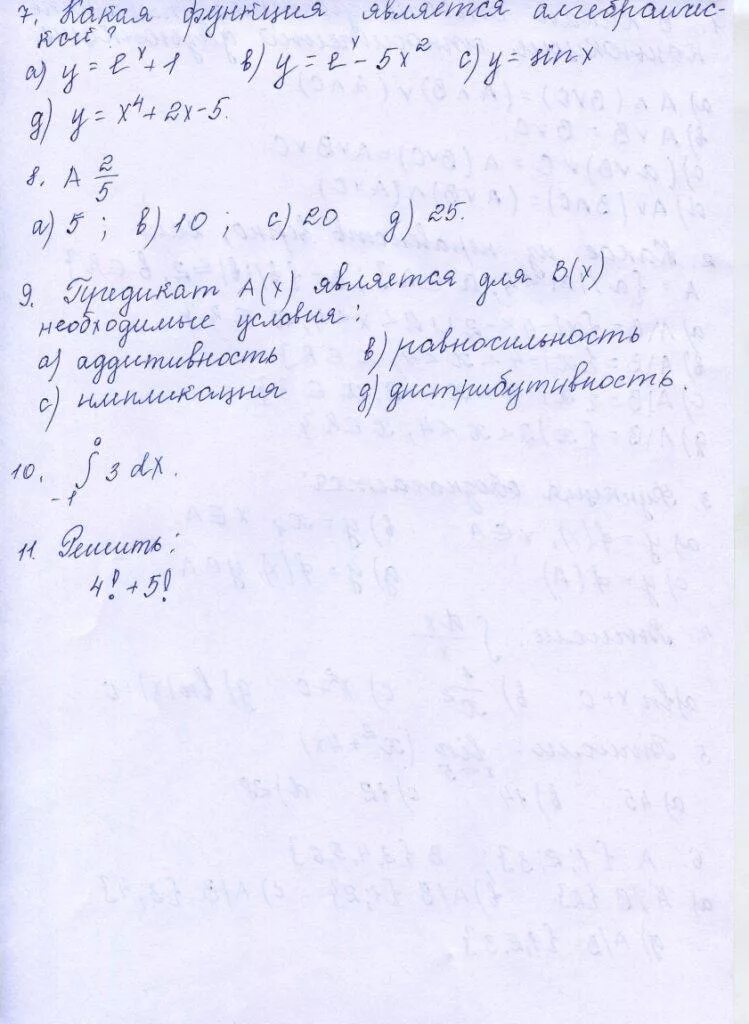 7. Какая функция является алгебраичес-
кой?
а) y = e^x + 1 в) y = e^x - 5x² с) y = sin x
д) y = x⁴ + 2x - 5.
8. A 2/5
а) 5 ; в) 10 ; с) 20 д) 25.
9. Предикат A(x) является для B(x)
необходимые условия:
а) аддитивность в) равносильность
с) импликация д) дистрибутивность.
10. ∫₋₁⁰ 3 dx.
11. Решить:
4! + 5!